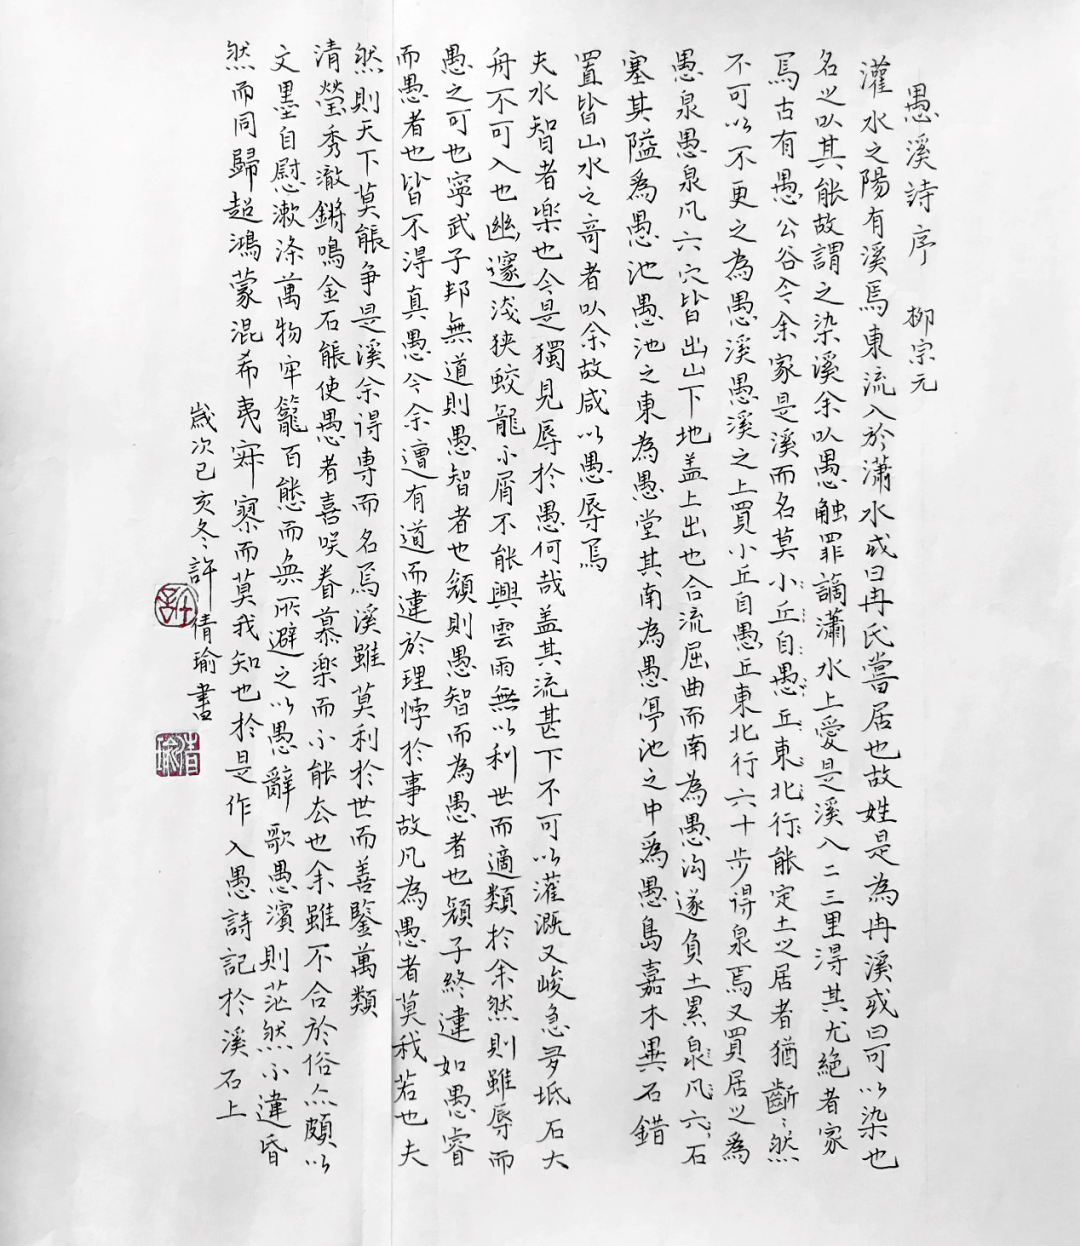 愚溪詩序 柳宗元
灌水之陽有溪焉東流入於瀟水或曰冉氏嘗居也故姓是為冉溪或曰可以染也
名之以其能故謂之染溪余以愚触罪謫瀟水上愛是溪入二三里得其尤絕者家
焉古有愚公谷今余家是溪而名莫小丘自愚丘東北行能定土之居者猶齗〻然
不可以不更之為愚溪愚溪之上買小丘自愚丘東北行六十步得泉焉又買居之為
愚泉愚泉凡六穴皆出山下地盖上出也合流屈曲而南為愚沟遂負土累泉凡六石
塞其隘為愚池愚池之東為愚堂其南為愚停池之中為愚島嘉木異石錯
置皆山水之奇者以余故咸以愚辱焉
夫水智者樂也今是獨見辱於愚何哉盖其流甚下不可以灌溉又峻急多坻石大
舟不可入也幽邃淺狹蛟龍小屑不能興雲雨無以利世而適類於余然則雖辱而
愚之可也寧武子邦無道則愚智者也頌則愚智而為愚者也顏子終違如愚睿
而愚者也皆不得真愚今余遭有道而違於理悖於事故凡為愚者莫我若也夫
然則天下莫能争是溪余得專而名焉溪雖莫利於世而善鑒萬類
清瑩秀澈鏘鳴金石能使愚者喜咲眷慕樂而不能去也余雖不合於俗亦頗以
文墨自慰漱涤萬物牢籠百態而無所避之以愚辭歌愚濱則茫然不違昏
然而同歸超鴻蒙混希夷寂寥而莫我知也於是作入愚詩記於溪石上
歲次己亥冬許倩瑜書
許
倩瑜